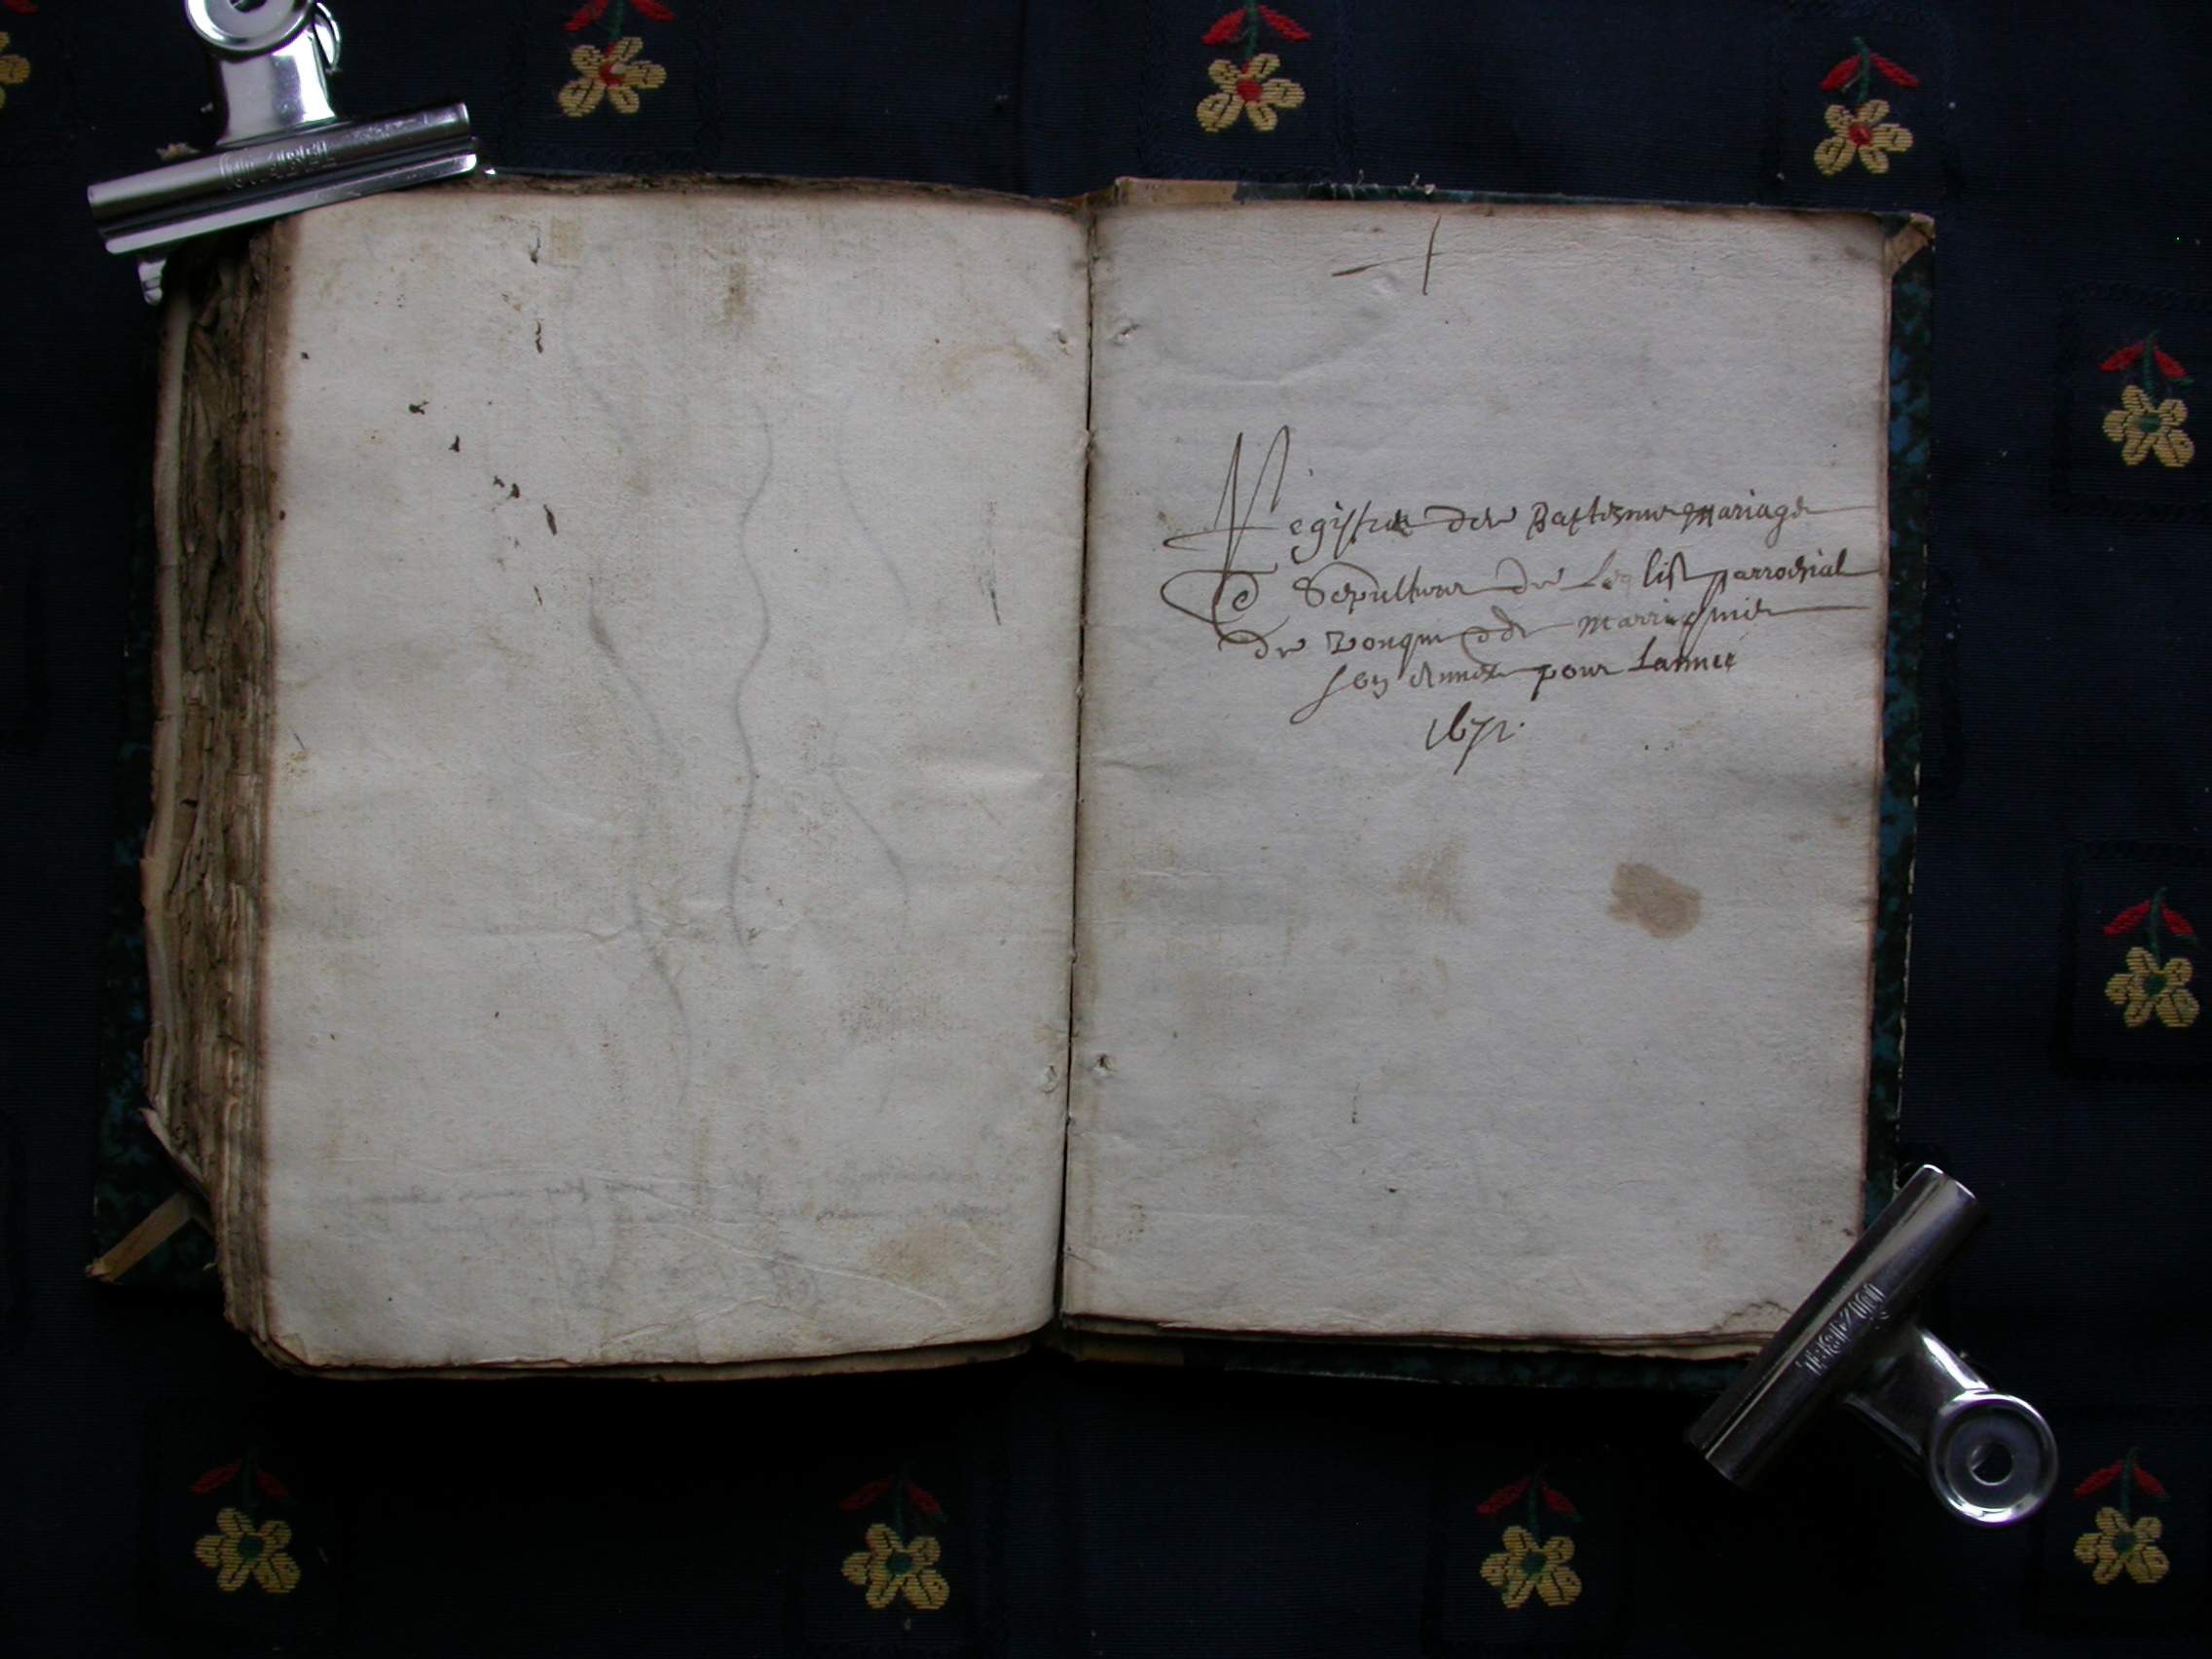 Registre des Baptesmes Mariages
Et Sepultures de Leglise parrochial
de Vonqu et de Marrignie
son Annexe pour Lannee
1671.